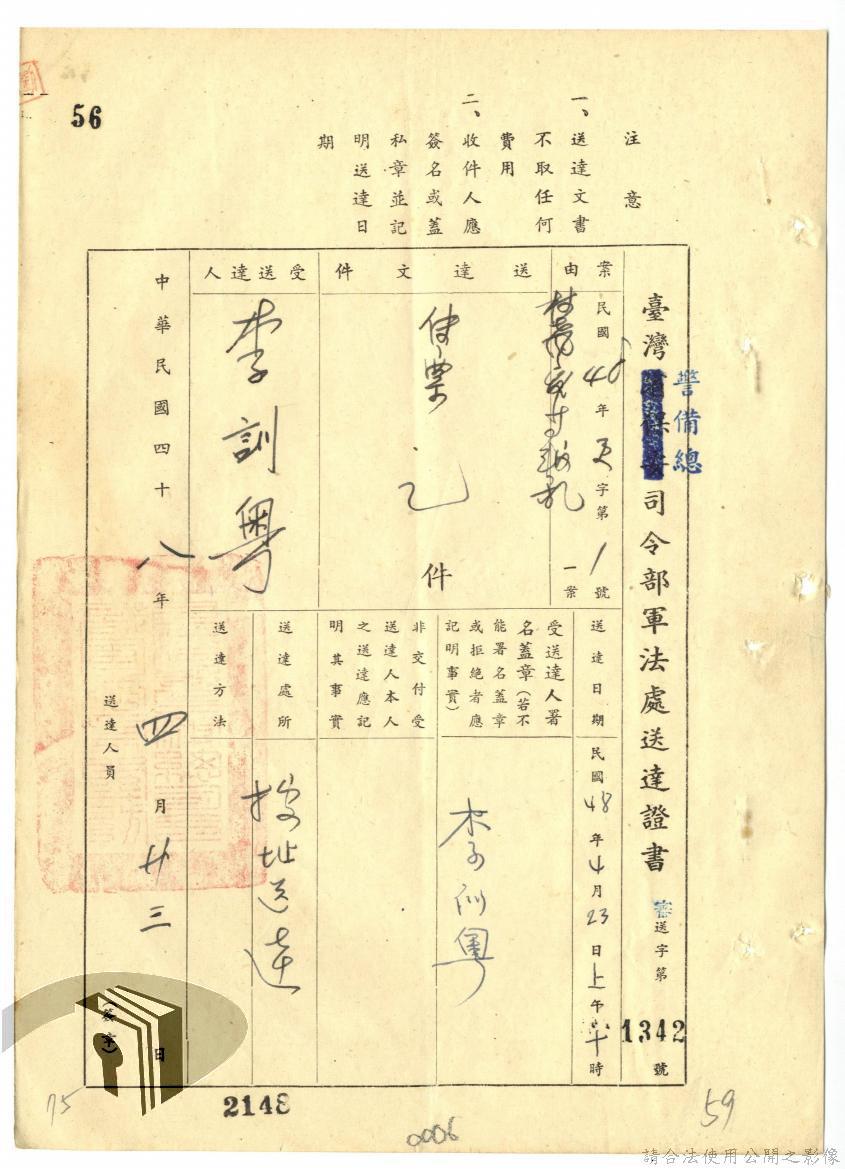 56
注意
一、送達文書
不取任何
費用
二、收件人應
簽名或蓋
私章並記
明送達日
期
臺灣警備總司令部軍法處送達證書
審送字第1342號
案由
民國48年更字第1號
一案
送達文件
傳票乙件
受送達人
李訓粵
送達日期
民國48年4月23日上午十時
受送達人署
名蓋章(若不
能署名蓋章
或拒絕者應
記明事實)
李訓粵
非交付受
送達人本人
之送達應記
明其事實
送達處所
送達方法
按址送達
中華民國四十八年四月廿三日
送達人員
(簽章)
75
2148
0006
59
請合法使用公開之影像